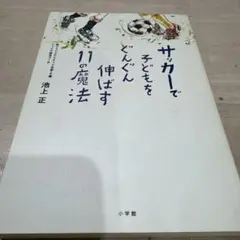 サッカーで
子どもを
どんどん
伸ばす
11の魔法
池上 正
小学館